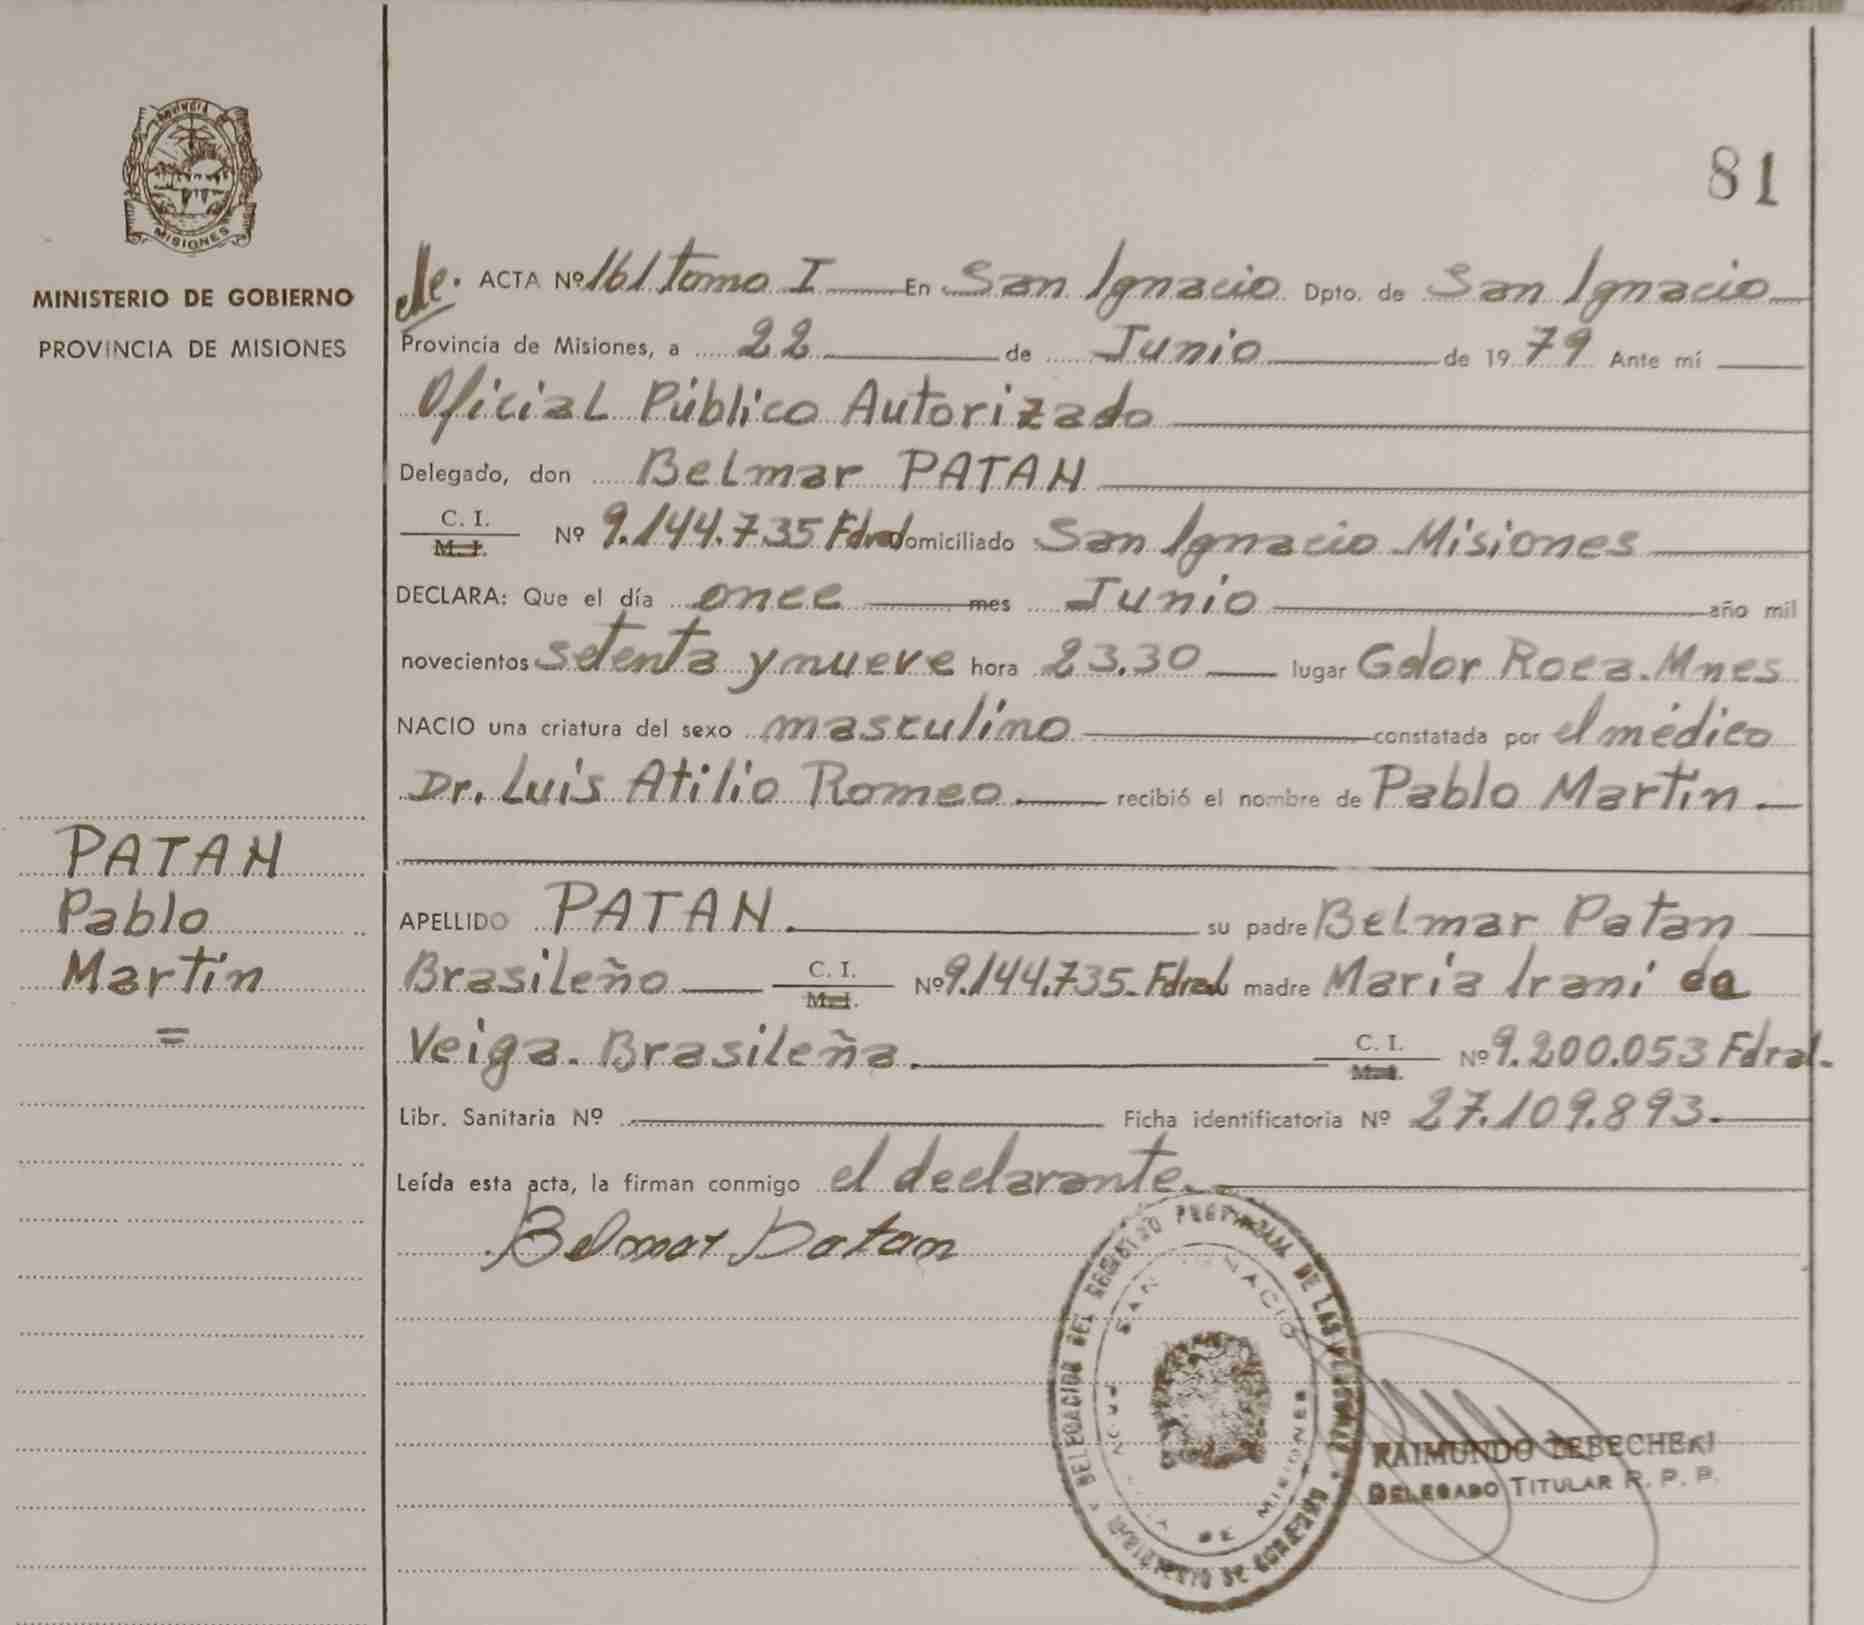 MISIONES
MINISTERIO DE GOBIERNO
PROVINCIA DE MISIONES
81
ACTA Nº 161 Tomo I En San Ignacio Dpto. de San Ignacio
Provincia de Misiones, a 22 de Junio de 1979 Ante mí
Oficial Público Autorizado
Delegado, don Belmar PATAN
C. I.
M. I. Nº 9.144.735 Fdral domiciliado San Ignacio Misiones
DECLARA: Que el día once mes Junio año mil
novecientos setenta y nueve hora 23.30 lugar Gdor Roca. Mnes
NACIO una criatura del sexo masculino constatada por el médico
Dr. Luis Atilio Romeo recibió el nombre de Pablo Martín
PATAN
Pablo
Martín
=
APELLIDO PATAN. su padre Belmar Patan
Brasileño C. I. M. I. Nº 9.144.735. Fdral madre María Iraní da
Veiga. Brasileña. C. I. M. I. Nº 9.200.053 Fdral.
Libr. Sanitaria Nº Ficha identificatoria Nº 27.109.893.
Leída esta acta, la firman conmigo el declarante.
Belmar Patan
DELEGACION DEL REGISTRO PROVINCIAL DE LAS PERSONAS
SAN IGNACIO
DE MISIONES
MINISTERIO DE GOBIERNO
RAIMUNDO
DELEGADO TITULAR R. P. P.